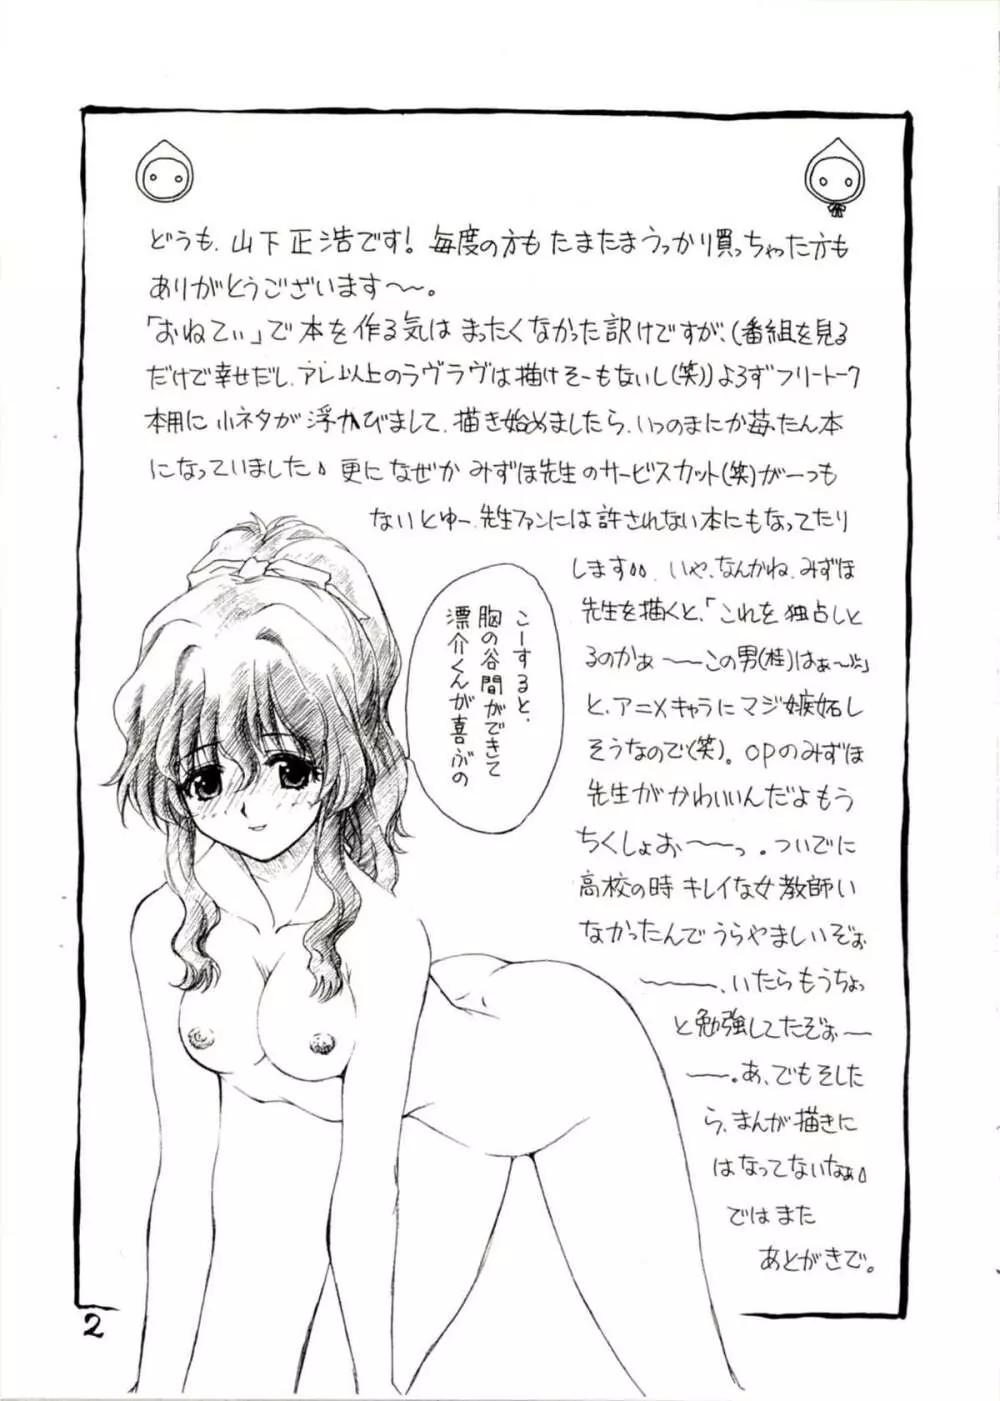 どうも、山下正浩です！毎度の方もたまたまうっかり買っちゃった方も
ありがとうございます〜〜。
「おねてぃ」で本を作る気はまったくなかった訳けですが、(番組を見る
だけで幸せだし、アレ以上のラヴラヴは描けそーもないし(笑))よろずフリートーク
本用に小ネタが浮かびまして、描き始めましたら、いつのまにか苺たん本
になっていました。更になぜかみずほ先生のサービスカット(笑)が一つも
ないとゆー、先生ファンには許されない本にもなってたり
します。いや、なんかね、みずほ
先生を描くと、「これを独占しと
るのかぁ〜〜この男(桂)はぁ〜」
と、アニメキャラにマジ嫉妬し
そうなので(笑)。OPのみずほ
先生がかわいいんだよもう
ちくしょお〜〜っ。ついでに
高校の時キレイな女教師い
なかったんでうらやましいぞぉ
〜〜〜、いたらもうちょっ
と勉強してたぞぉ〜
〜〜。あ、でもそした
ら、まんが描きに
はなってないなぁ
ではまた
あとがきで。
こーすると、
胸の谷間ができて
漂介くんが喜ぶの
2